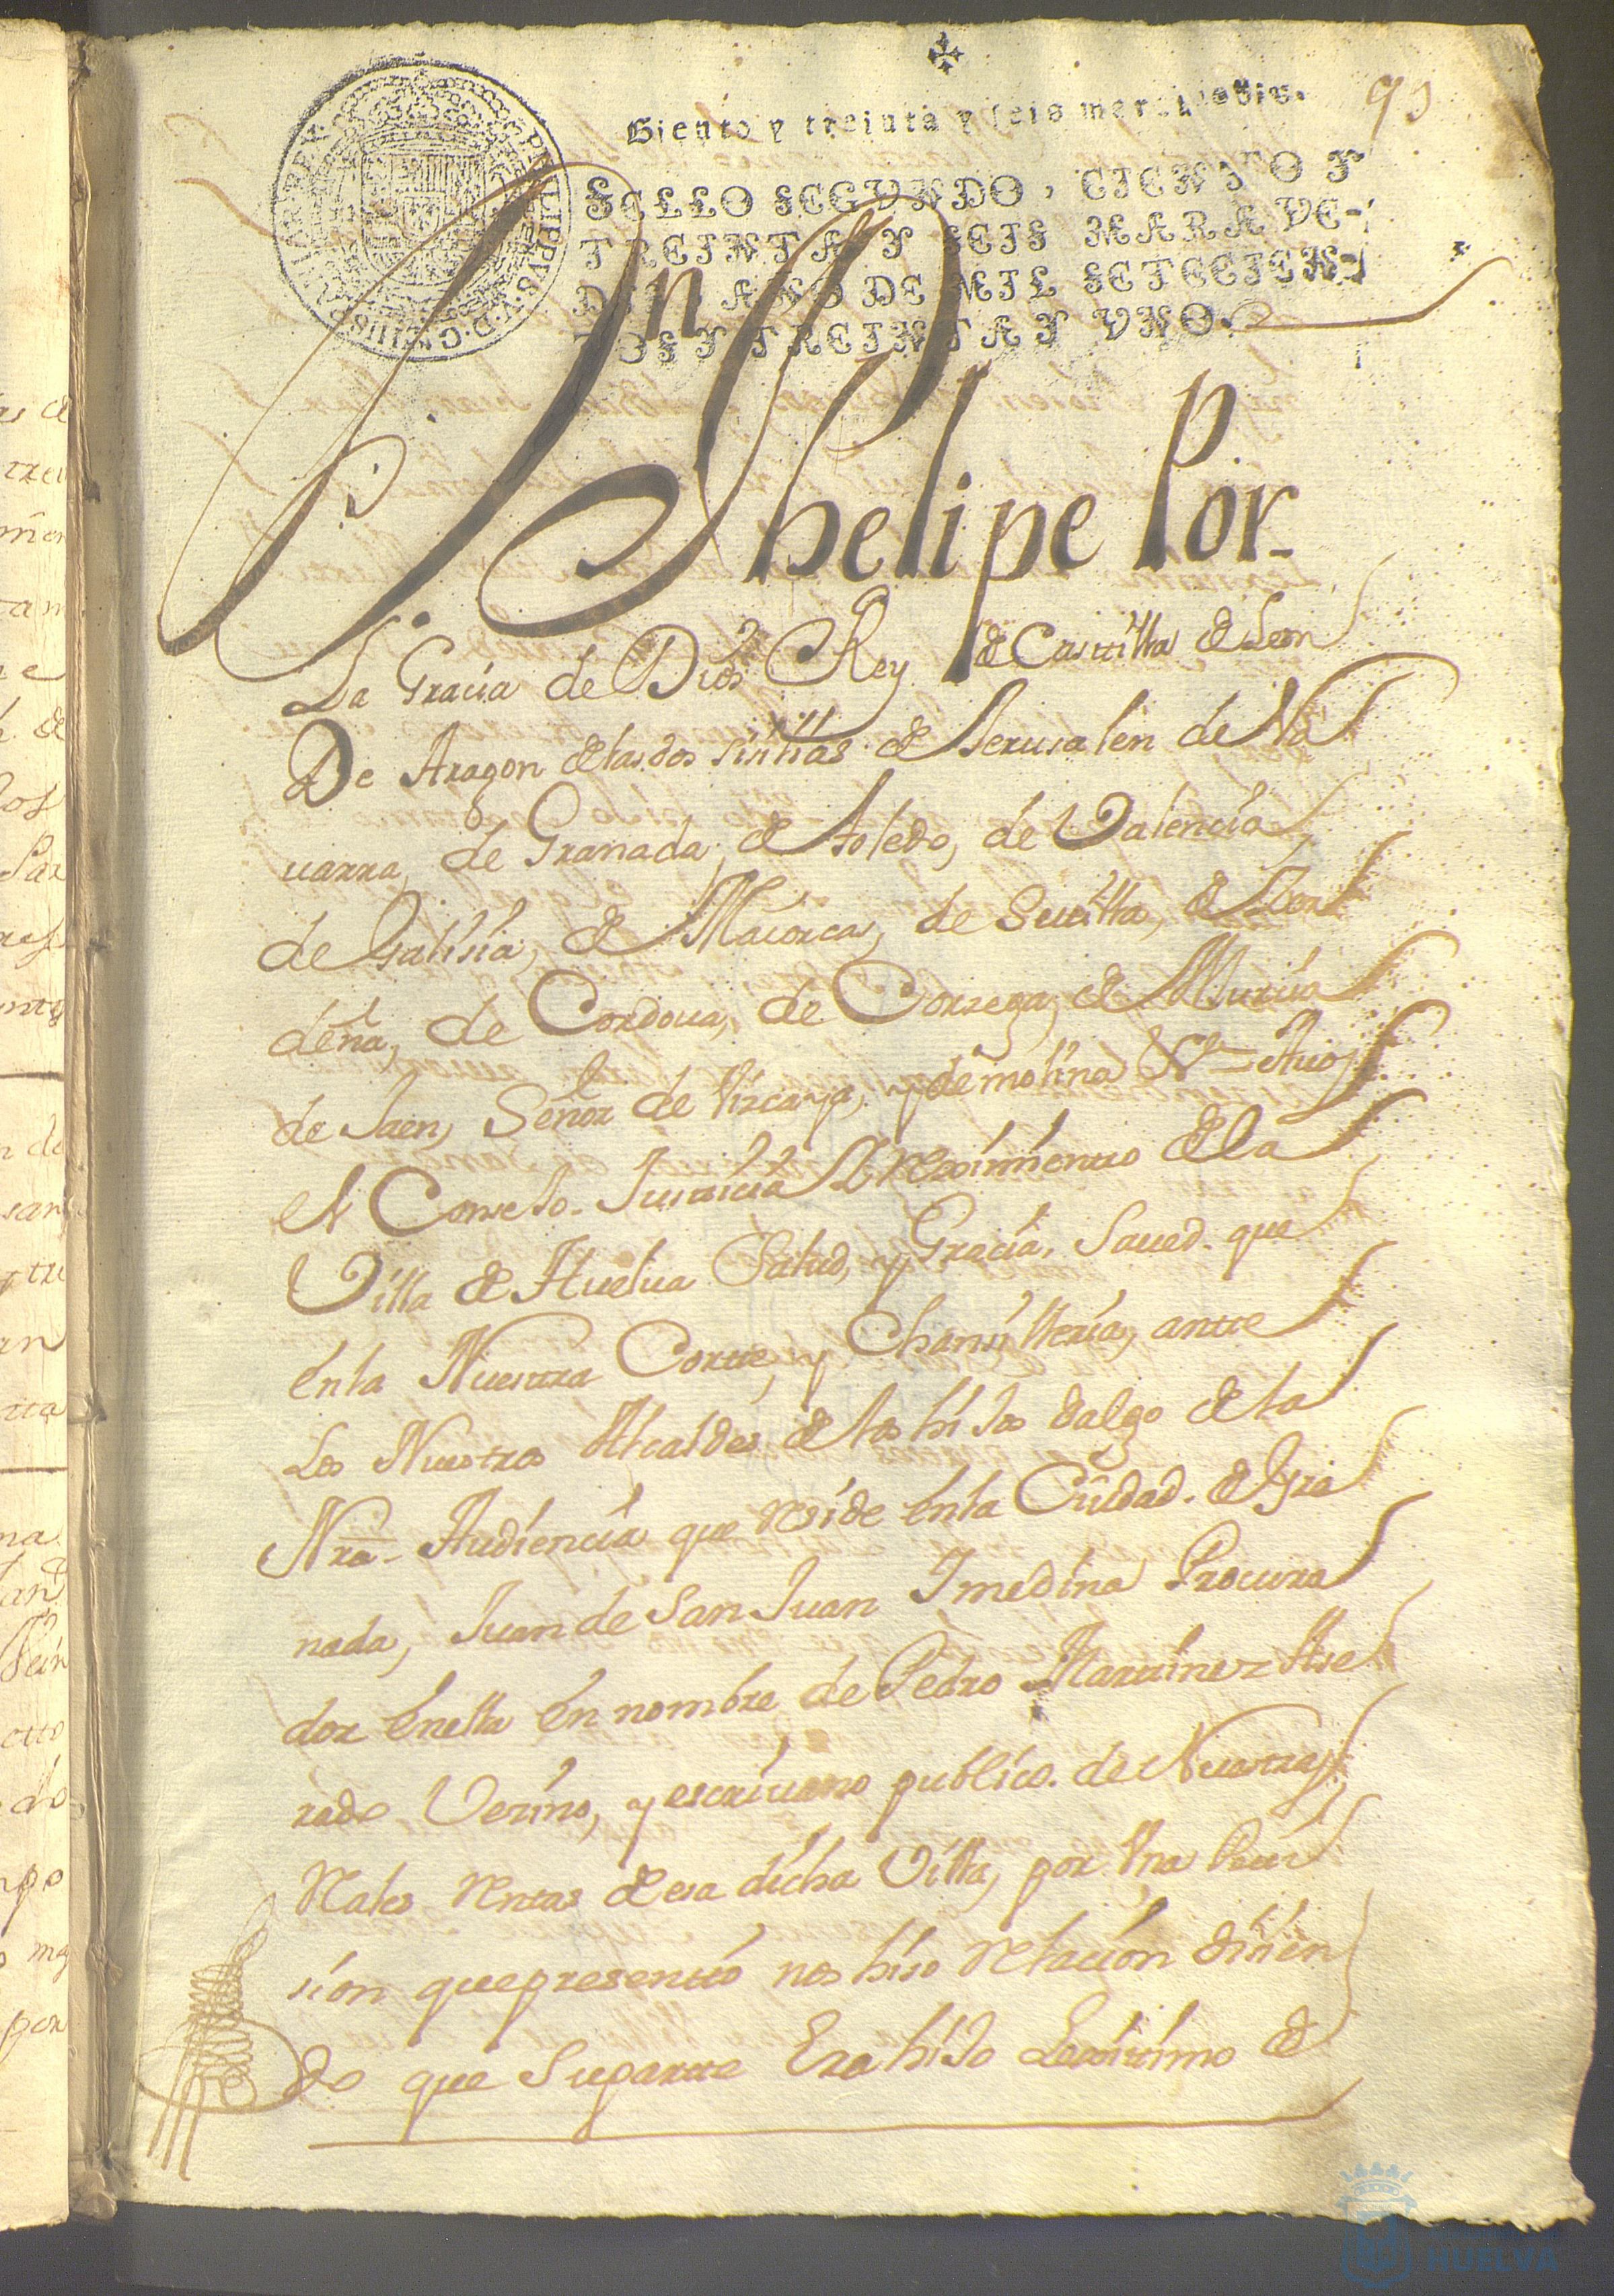 93
Siento y treinta y seis marauedis.
SELLO SEGVNDO, CIENTO Y
TREINTA Y SEIS MARAVE-
DIS, AÑO DE MIL SETECIEN-
TOS Y TREINTA Y VNO.
PHILIPPVS V D G HISPANIAR REX
Dn Phelipe Por-
La Gracia de Dios Rey de Castilla de Leon
De Aragon de las dos sisilias de Jerusalen de Na
uarra, de Granada, de toledo, de Valencia
de Galisia, de Maiorca, de Seuilla, de Zer
deña, de Cordoua, de Corzega, de Murcia
de Jaen, Señor de Vizcaya, y de molina &ª A uos
el ConseJo Justicia y reximiento de la
Villa de Huelua Salud, y Gracia, Saued que
en la Nuestra Corte, y Chansilleria, ante
Los Nuestros Alcaldes de los hiJos dalgo de la
Nra Audiencia que reside en la Ciudad de Gra
nada, Juan de San Juan Y medina Procura
dor en ella en nombre de Pedro Martinez Ase
rado Vezino, y escriuano publico de Nuestras
Reales rentas de esa dicha Villa, por Vna Peti
sion que presentó nos hiso relación disien
do que Su parte Era hiJo Lexitimo de
HUELVA